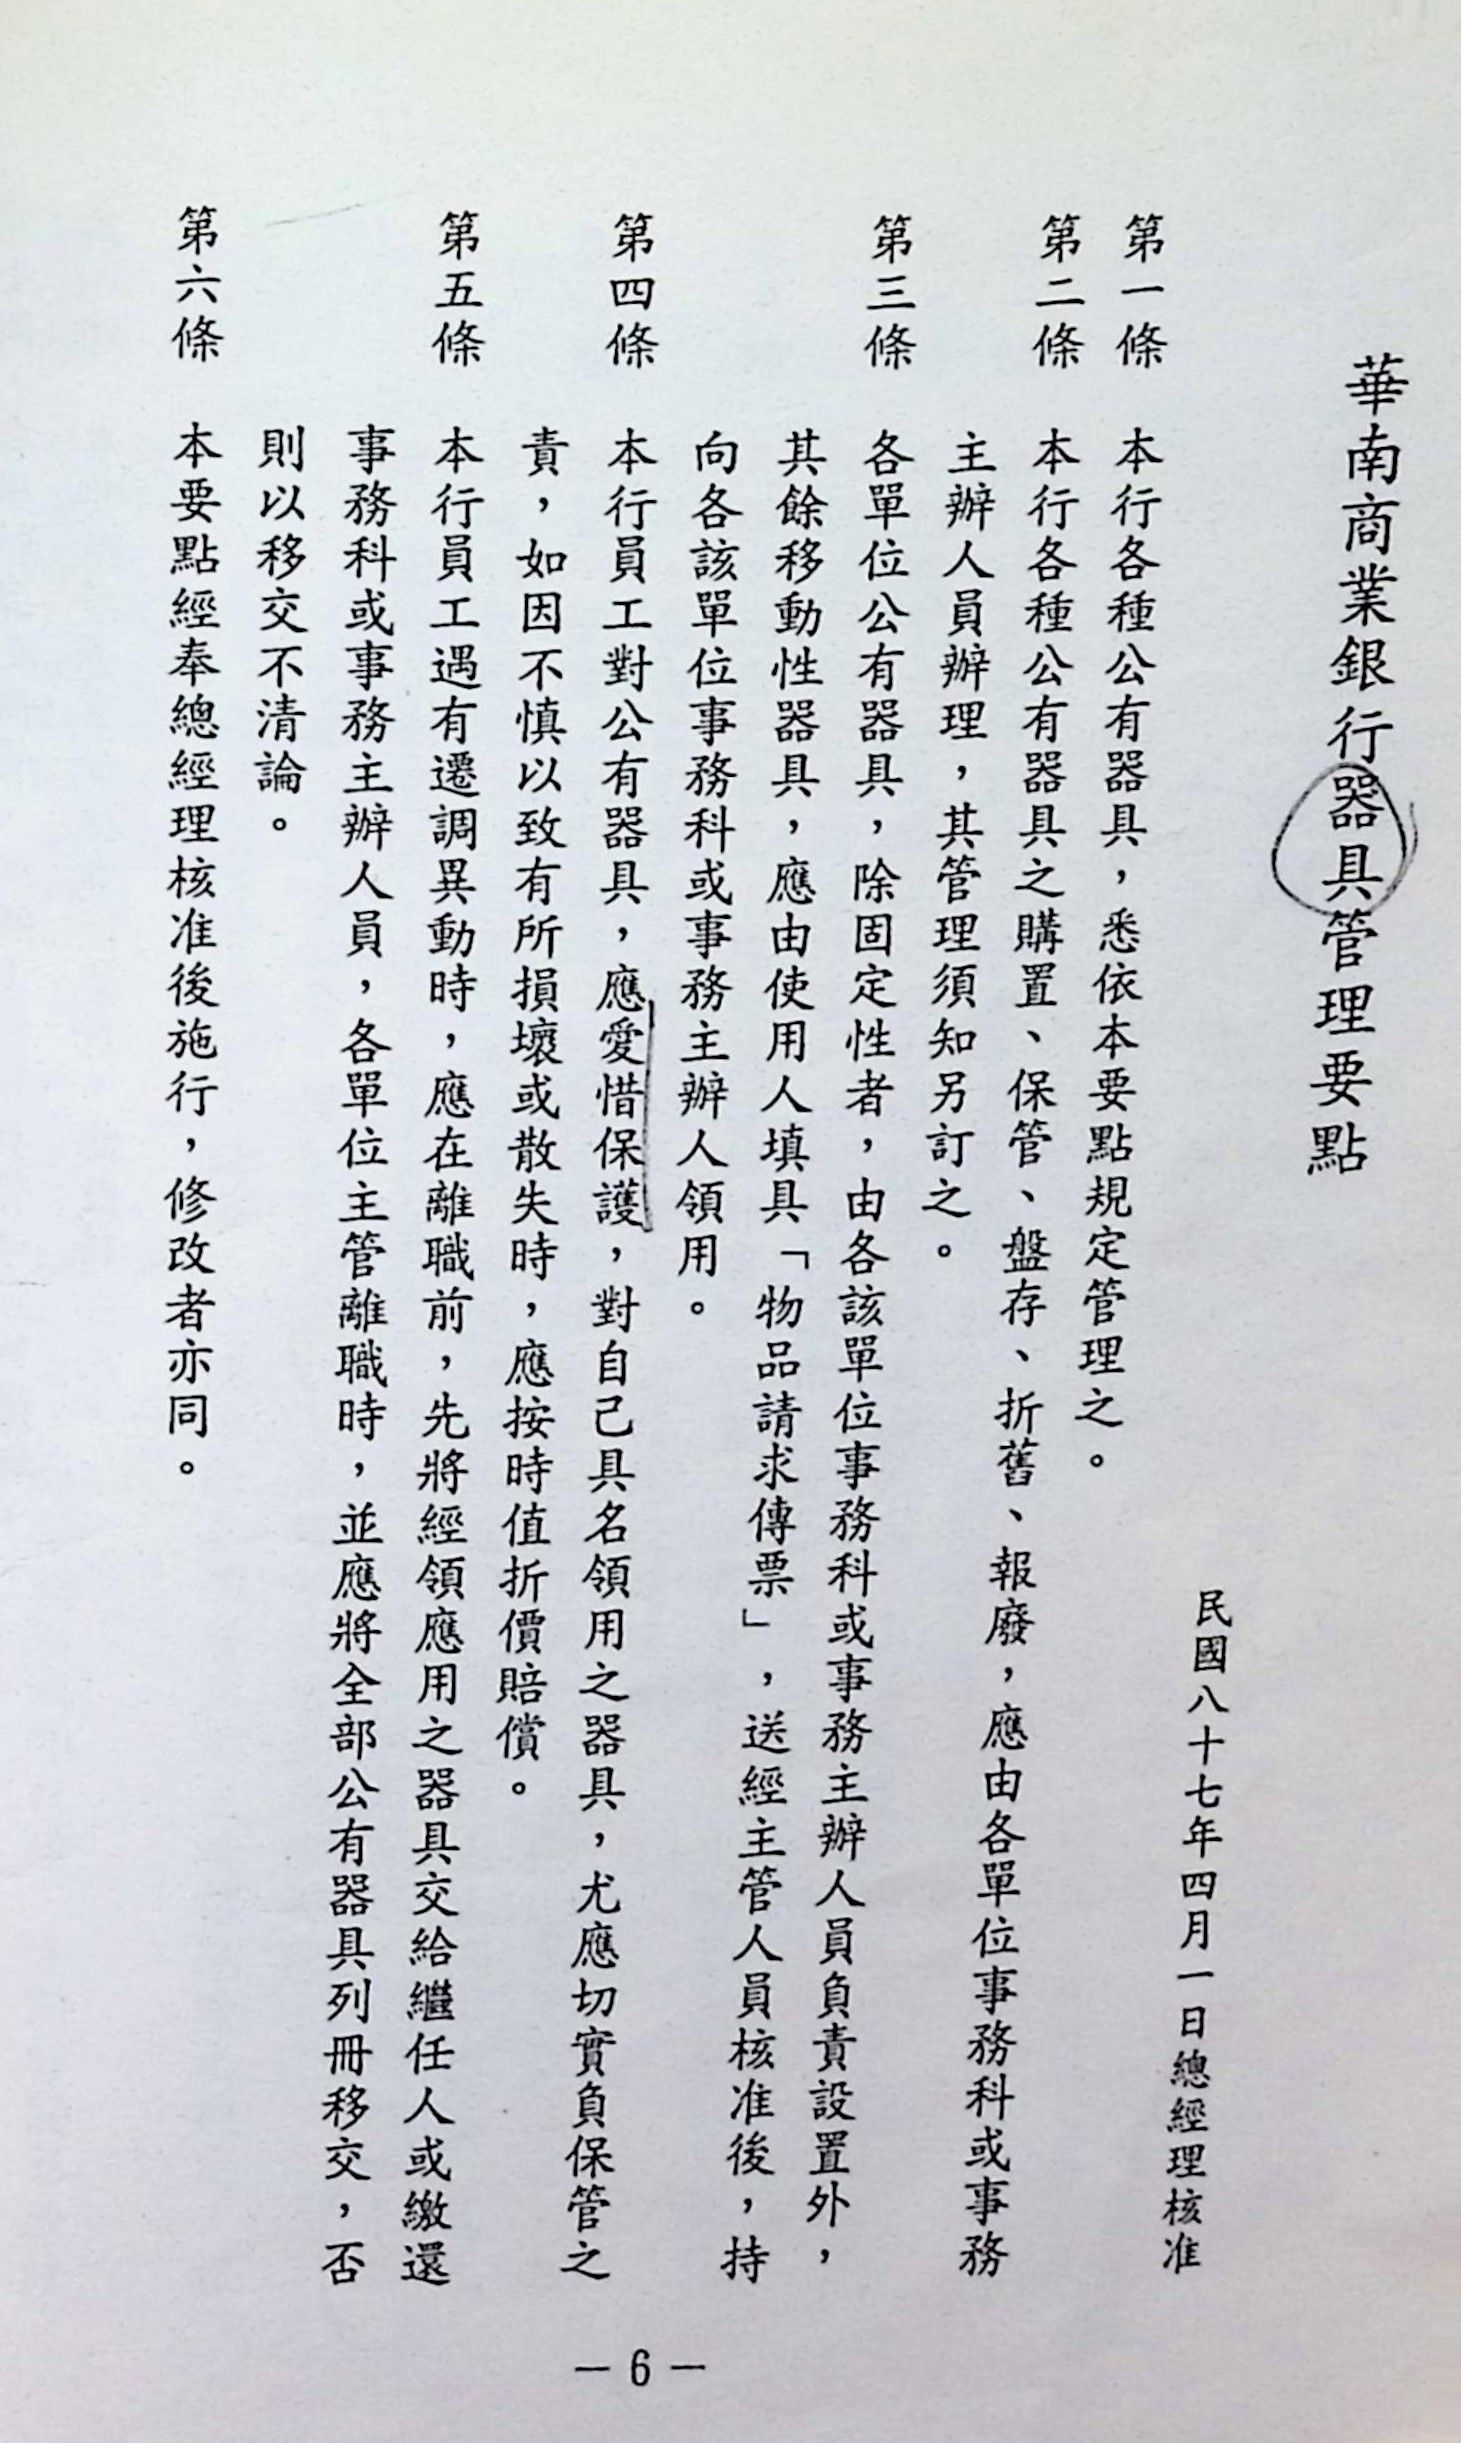 華南商業銀行器具管理要點
民國八十七年四月一日總經理核准
第一條　本行各種公有器具，悉依本要點規定管理之。
第二條　本行各種公有器具之購置、保管、盤存、折舊、報廢，應由各單位事務科或事務
主辦人員辦理，其管理須知另訂之。
第三條　各單位公有器具，除固定性者，由各該單位事務科或事務主辦人員負責設置外，
其餘移動性器具，應由使用人填具「物品請求傳票」，送經主管人員核准後，持
向各該單位事務科或事務主辦人領用。
第四條　本行員工對公有器具，應愛惜保護，對自己具名領用之器具，尤應切實負保管之
責，如因不慎以致有所損壞或散失時，應按時值折價賠償。
第五條　本行員工遇有遷調異動時，應在離職前，先將經領應用之器具交給繼任人或繳還
事務科或事務主辦人員，各單位主管離職時，並應將全部公有器具列冊移交，否
則以移交不清論。
第六條　本要點經奉總經理核准後施行，修改者亦同。
－6－